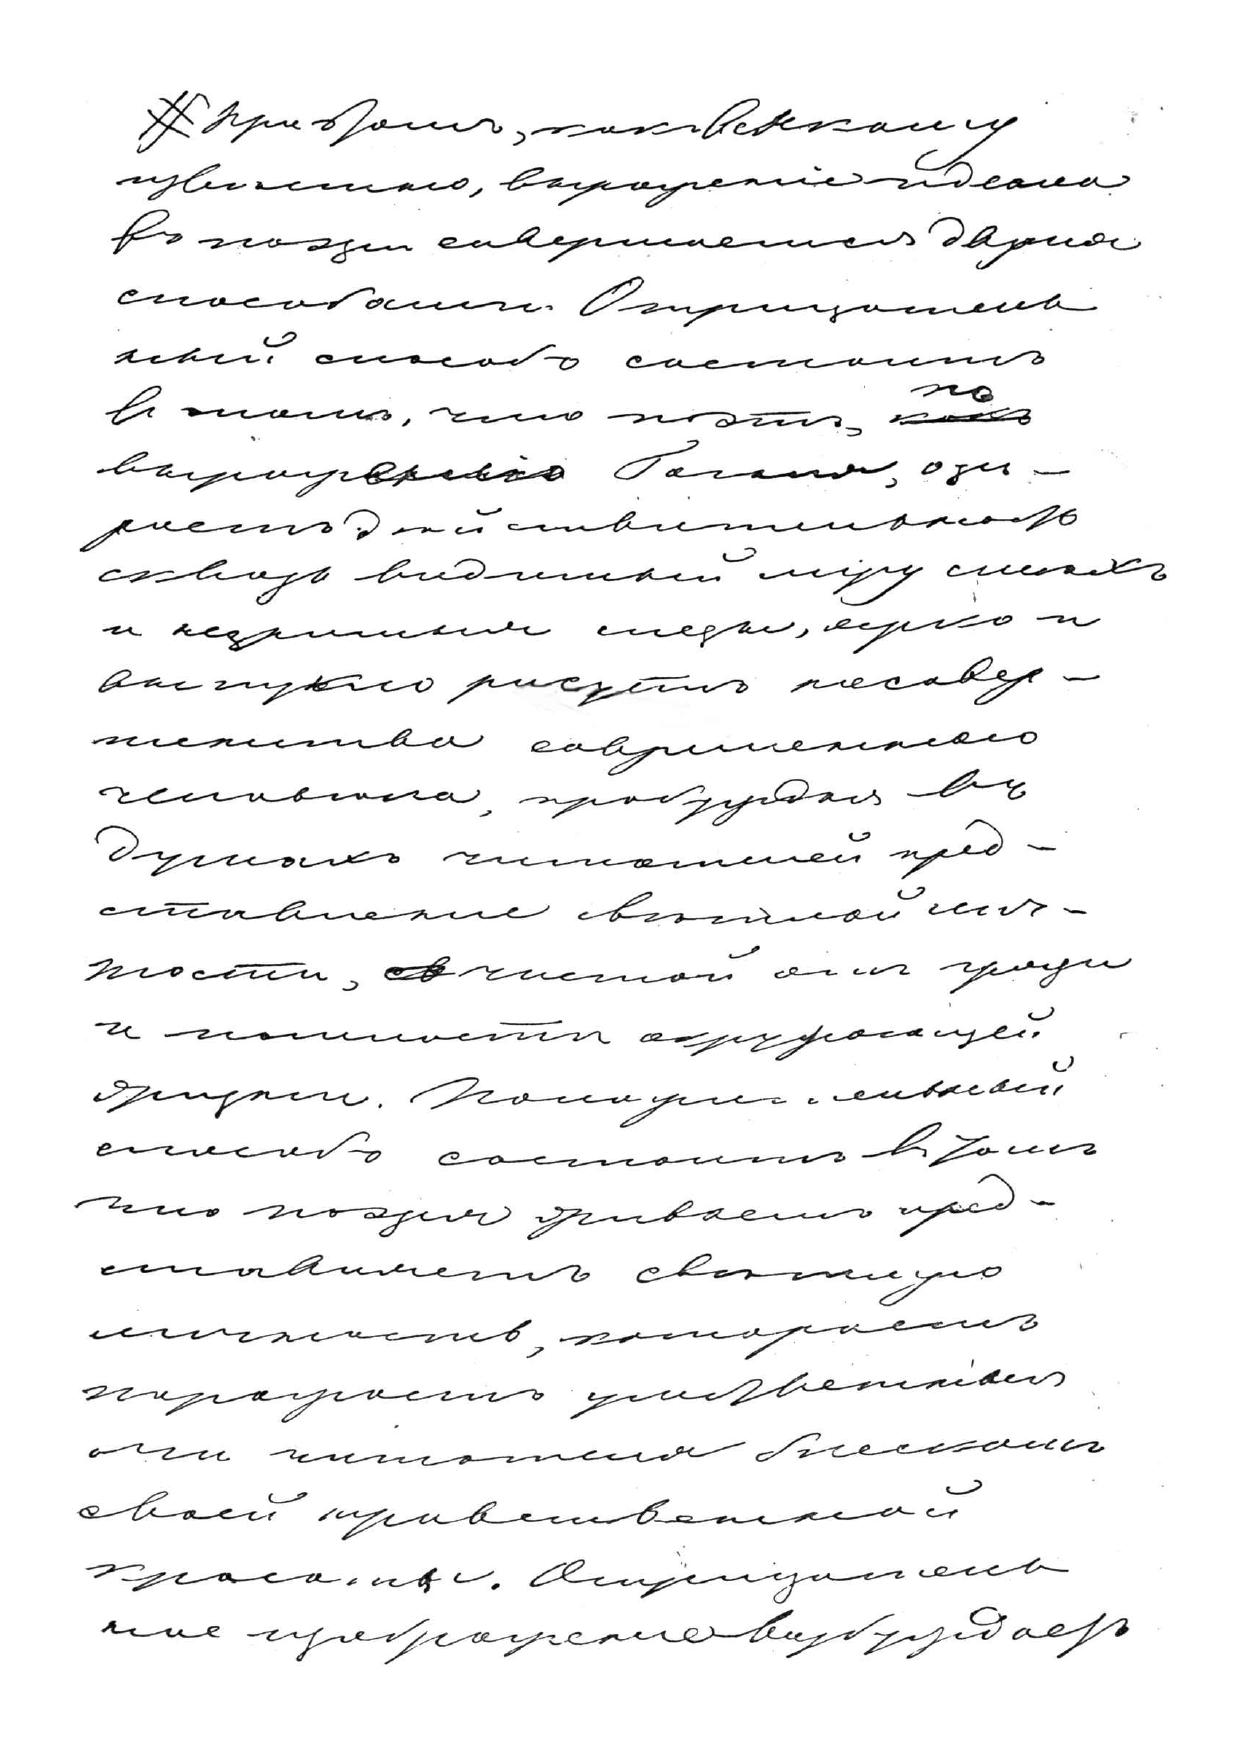 При этомъ, какъ всякому
извѣстно, выраженіе идеала
въ поэзіи совершается двумя
способами. Отрицатель
ный способъ состоитъ
въ томъ, что поэтъ, по
выраженію Гоголя, ози-
раетъ дѣйствительность
сквозь видимый міру смѣхъ
и незримыя слезы, ярко и
выпукло рисуетъ несовер-
шенства современнаго
человѣка, пробуждая въ
думахъ читателей пред-
ставленіе свѣтлой лич-
ности, чистой отъ грязи
и пошлости окружающей
жизни. Положительный
способъ состоитъ въ томъ
что поэзія живьемъ пред-
ставляетъ свѣтлую
личность, которая
поражаетъ умственныя
очи читателя блескомъ
своей нравственной
красоты. Отрицатель
ное изображеніе возбуждаетъ